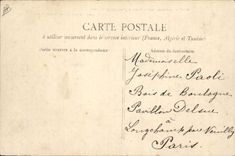 CARTE POSTALE
à utiliser seulement dans le service intérieur (France, Algérie et Tunisie)
Partie réservée à la correspondance
Adresse du destinataire
Mademoiselle
Joséphine Paoli
Bois de Boulogne
Pavillon
à
Longchamp par Neuilly
Paris.